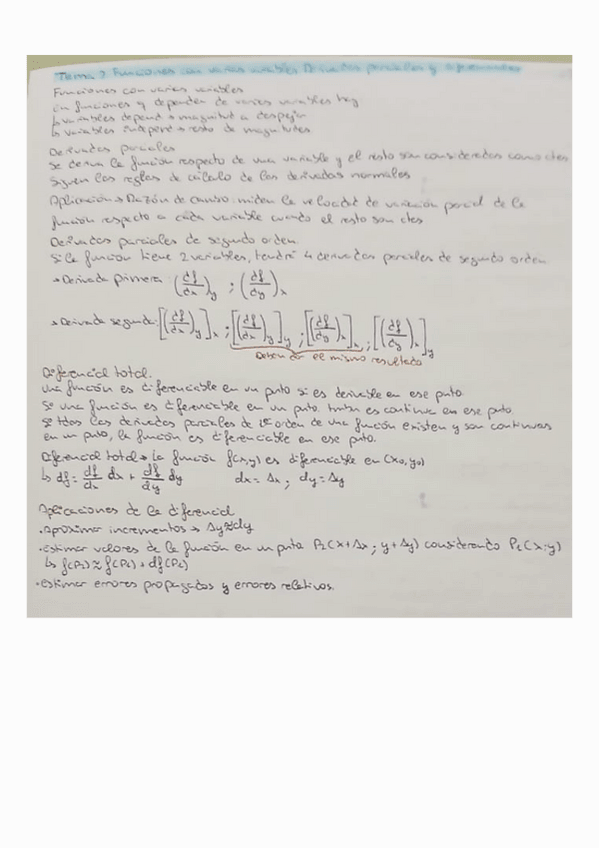 Tema 7 Funciones con varias variables Derivadas parciales y diferenciales
Funciones con varias variables
En funciones q dependen de varias variables hay
↳ variables depend → magnitud a despejar
↳ variables independ → resto de magnitudes
Derivadas parciales
Se deriva la función respecto de una variable y el resto son consideradas como ctes
Siguen las reglas de cálculo de las derivadas normales
Aplicación → Razón de cambio: miden la velocidad de variación parcial de la
función respecto a cada variable cuando el resto son ctes
Derivadas parciales de segundo orden
Si la función tiene 2 variables, tendrá 4 derivadas parciales de segundo orden
→ Derivada primera (df/dx)y ; (df/dy)x
→ Derivada segunda: [(df/dx)y]x ; [(df/dx)y]y ; [(df/dy)x]x ; [(df/dy)x]y
Deben dar el mismo resultado
Diferencial total.
Una función es diferenciable en un pnto si es derivable en ese pnto.
Si una función es diferenciable en un pnto, tmbn es continua en ese pto.
Si tdas las derivadas parciales de 1er orden de una función existen y son continuas
en un pnto, la función es diferenciable en ese pnto.
Diferencial total → La función f(x,y) es diferenciable en (x0, y0)
↳ df = df/dx dx + df/dy dy dx = Δx ; dy = Δy
Aplicaciones de la diferencial
· Aproximar incrementos → Δy ≈ dy
· Estimar valores de la función en un pnto P2(x+Δx ; y+Δy) considerando P1(x;y)
↳ f(P2) ≈ f(P1) + df(P1)
· Estimar errores propagados y errores relativos.